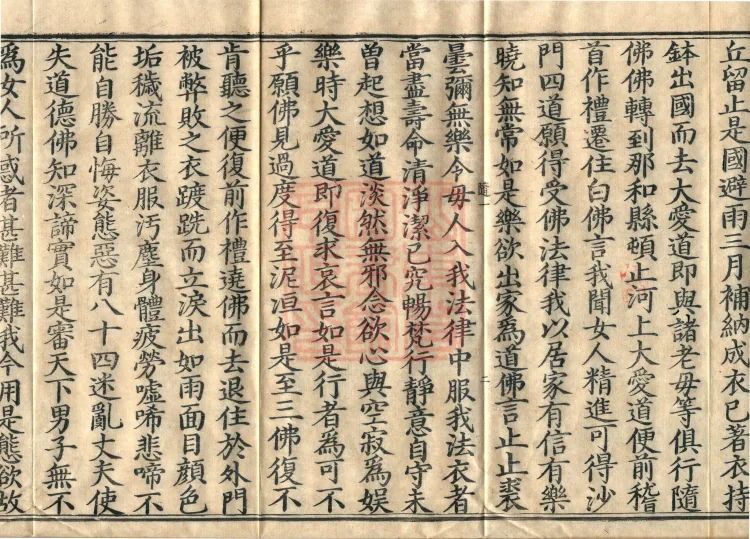 丘留止是國避雨三月補納成衣已著衣持
鉢出國而去大愛道即與諸老母等俱行隨
佛佛轉到那和縣頓止河上大愛道便前稽
首作禮遷住白佛言我聞女人精進可得沙
門四道願得受佛法律我以居家有信有樂
曉知無常如是樂欲出家為道佛言止止裘
曇彌無樂令母人入我法律中服我法衣者
當盡壽命清淨潔已究暢梵行靜意自守未
曾起想如道淡然無邪念欲心與空寂為娛
樂時大愛道即復求哀言如是行者為可不
乎願佛見過度得至泥洹如是至三佛復不
肯聽之便復前作禮遶佛而去退住於外門
被弊敗之衣踱跣而立淚出如雨面目顏色
垢穢流離衣服污塵身體疲勞噓唏悲啼不
能自勝自悔姿態惡有八十四迷亂丈夫使
失道德佛知深諦實如是審天下男子無不
為女人所惑者甚難甚難我今用是態欲故